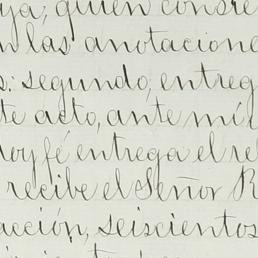 ya, quien conser
n las anotacione
s: segundo, entreg
te acto, ante mí
doy fé entrega el re
recibe el Señor R
acción, seiscientos